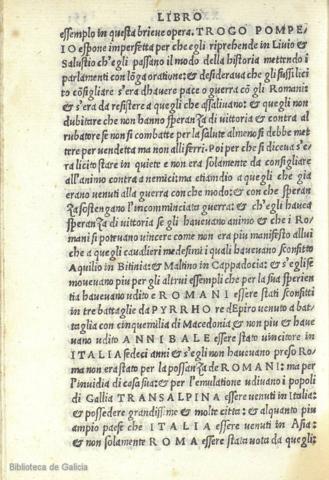 LIBRO
essemplo in questa brieve opera. TROGO POMPE-
IO espone imperfetta per che egli riprehende in Livio &
Salustio ch'egli passano il modo della historia mettendo i
parlamenti con lõga oratione; & desiderava che gli fussi lici
to cõsigliare s'era d havere pace o guerra cõ gli Romani:
& s'era da resistere a quegli che assalivano: & quegli non
dubitare che non hanno speranza di vittoria & contra al
rubatore se non si combatte per la salute almeno si debbe met
tere per vendetta ma non alli ferri. Poi per che si diceva s'e-
ra licito stare in quiete e non era solamente da consigliare
all'animo contra a nemici; ma etiamdio a quegli che gia
erano venuti alla guerra con che modo: & con che speran
za sostengano l'incomminciata guerra: & ch'egli havea
speranza di vittoria se gli havevano animo & che i Ro-
mani si potevano vincere come non era piu manifesto allui
che a quegli cavalieri medesimi i quali havevano sconfitto
Aquilio in Bitinia: & Maltino in Cappadocia: & s'egli se
movevano piu per gli altrui essempli che per la sua sperien
tia havevano udito e ROMANI essere stati sconfitti
in tre battaglie da PYRRHO re d Epiro venuto a bat-
taglia con cinquemilia di Macedonia & non piu & have
vano udito ANNIBALE essere stato vincitore in
ITALIA sedeci anni & s'egli non havevano preso Ro-
ma non era stato per la possanza de ROMANI: ma per
l'invidia di casa sua: & per l'emulatione udivano i popoli
di Gallia TRANSALPINA essere venuti in Italia:
& possedere grandissime & molte citta: & alquanto piu
ampio paese che ITALIA essere venuti in Asia:
& non solamente ROMA essere stata vota da quegli;
Biblioteca de Galicia